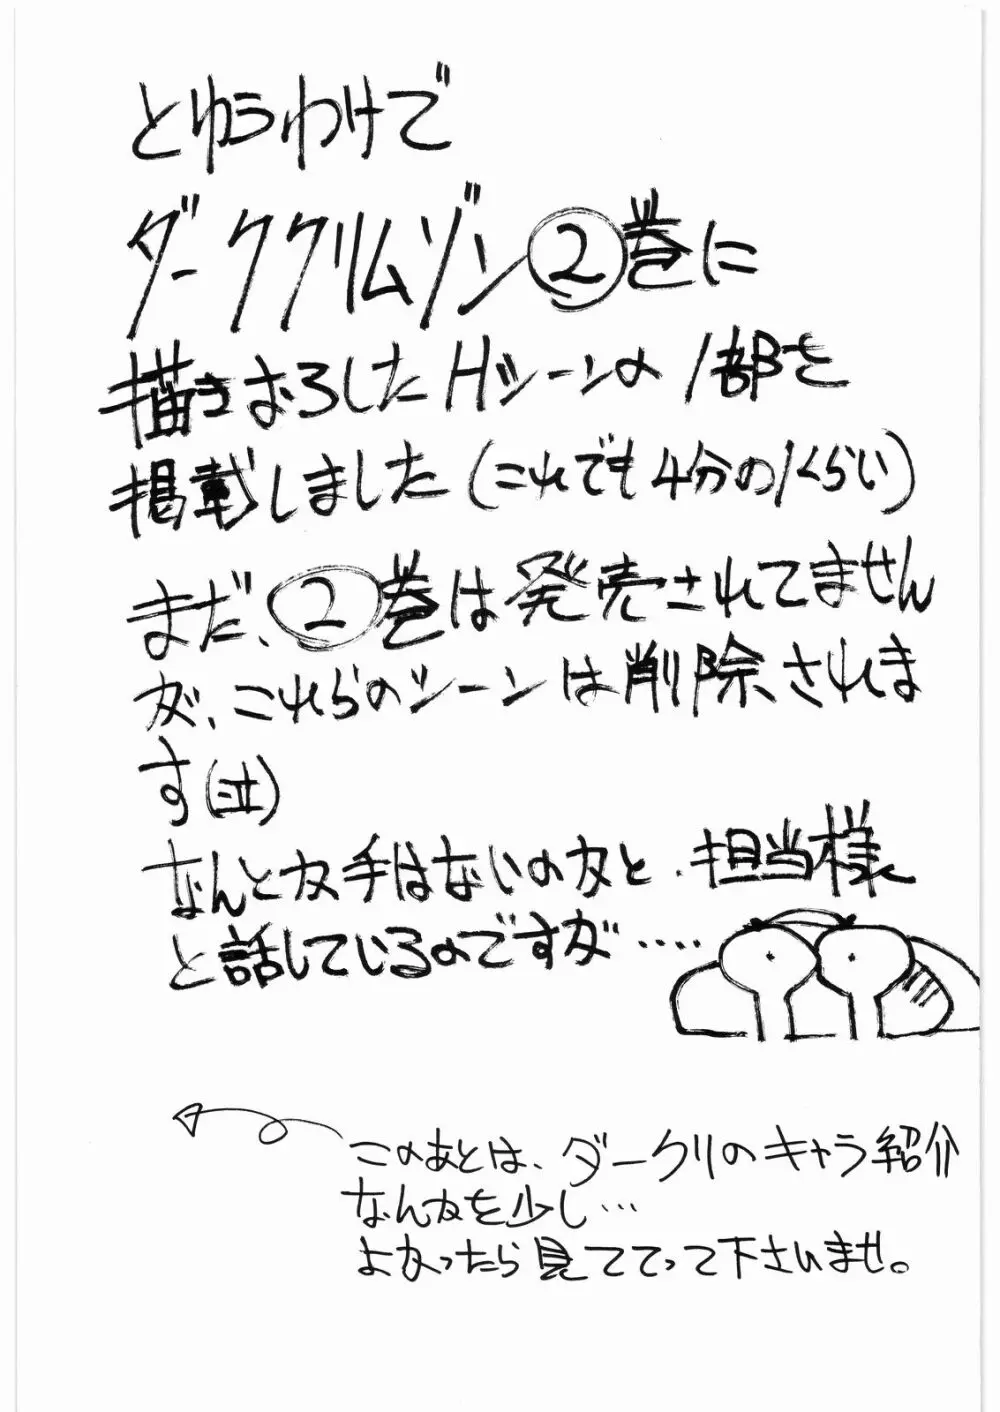 とゆうわけで
ダーククリムゾン②巻に
描きおろしたHシーンの1部を
掲載しました(これでも4分の1くらい)
まだ、②巻は発売されてません
が、これらのシーンは削除されま
す(泣)
なんとか手はないのかと、担当様
と話しているのですが‥‥
このあとは、ダークリのキャラ紹介
なんかを少し…
よかったら見ててって下さいませ。